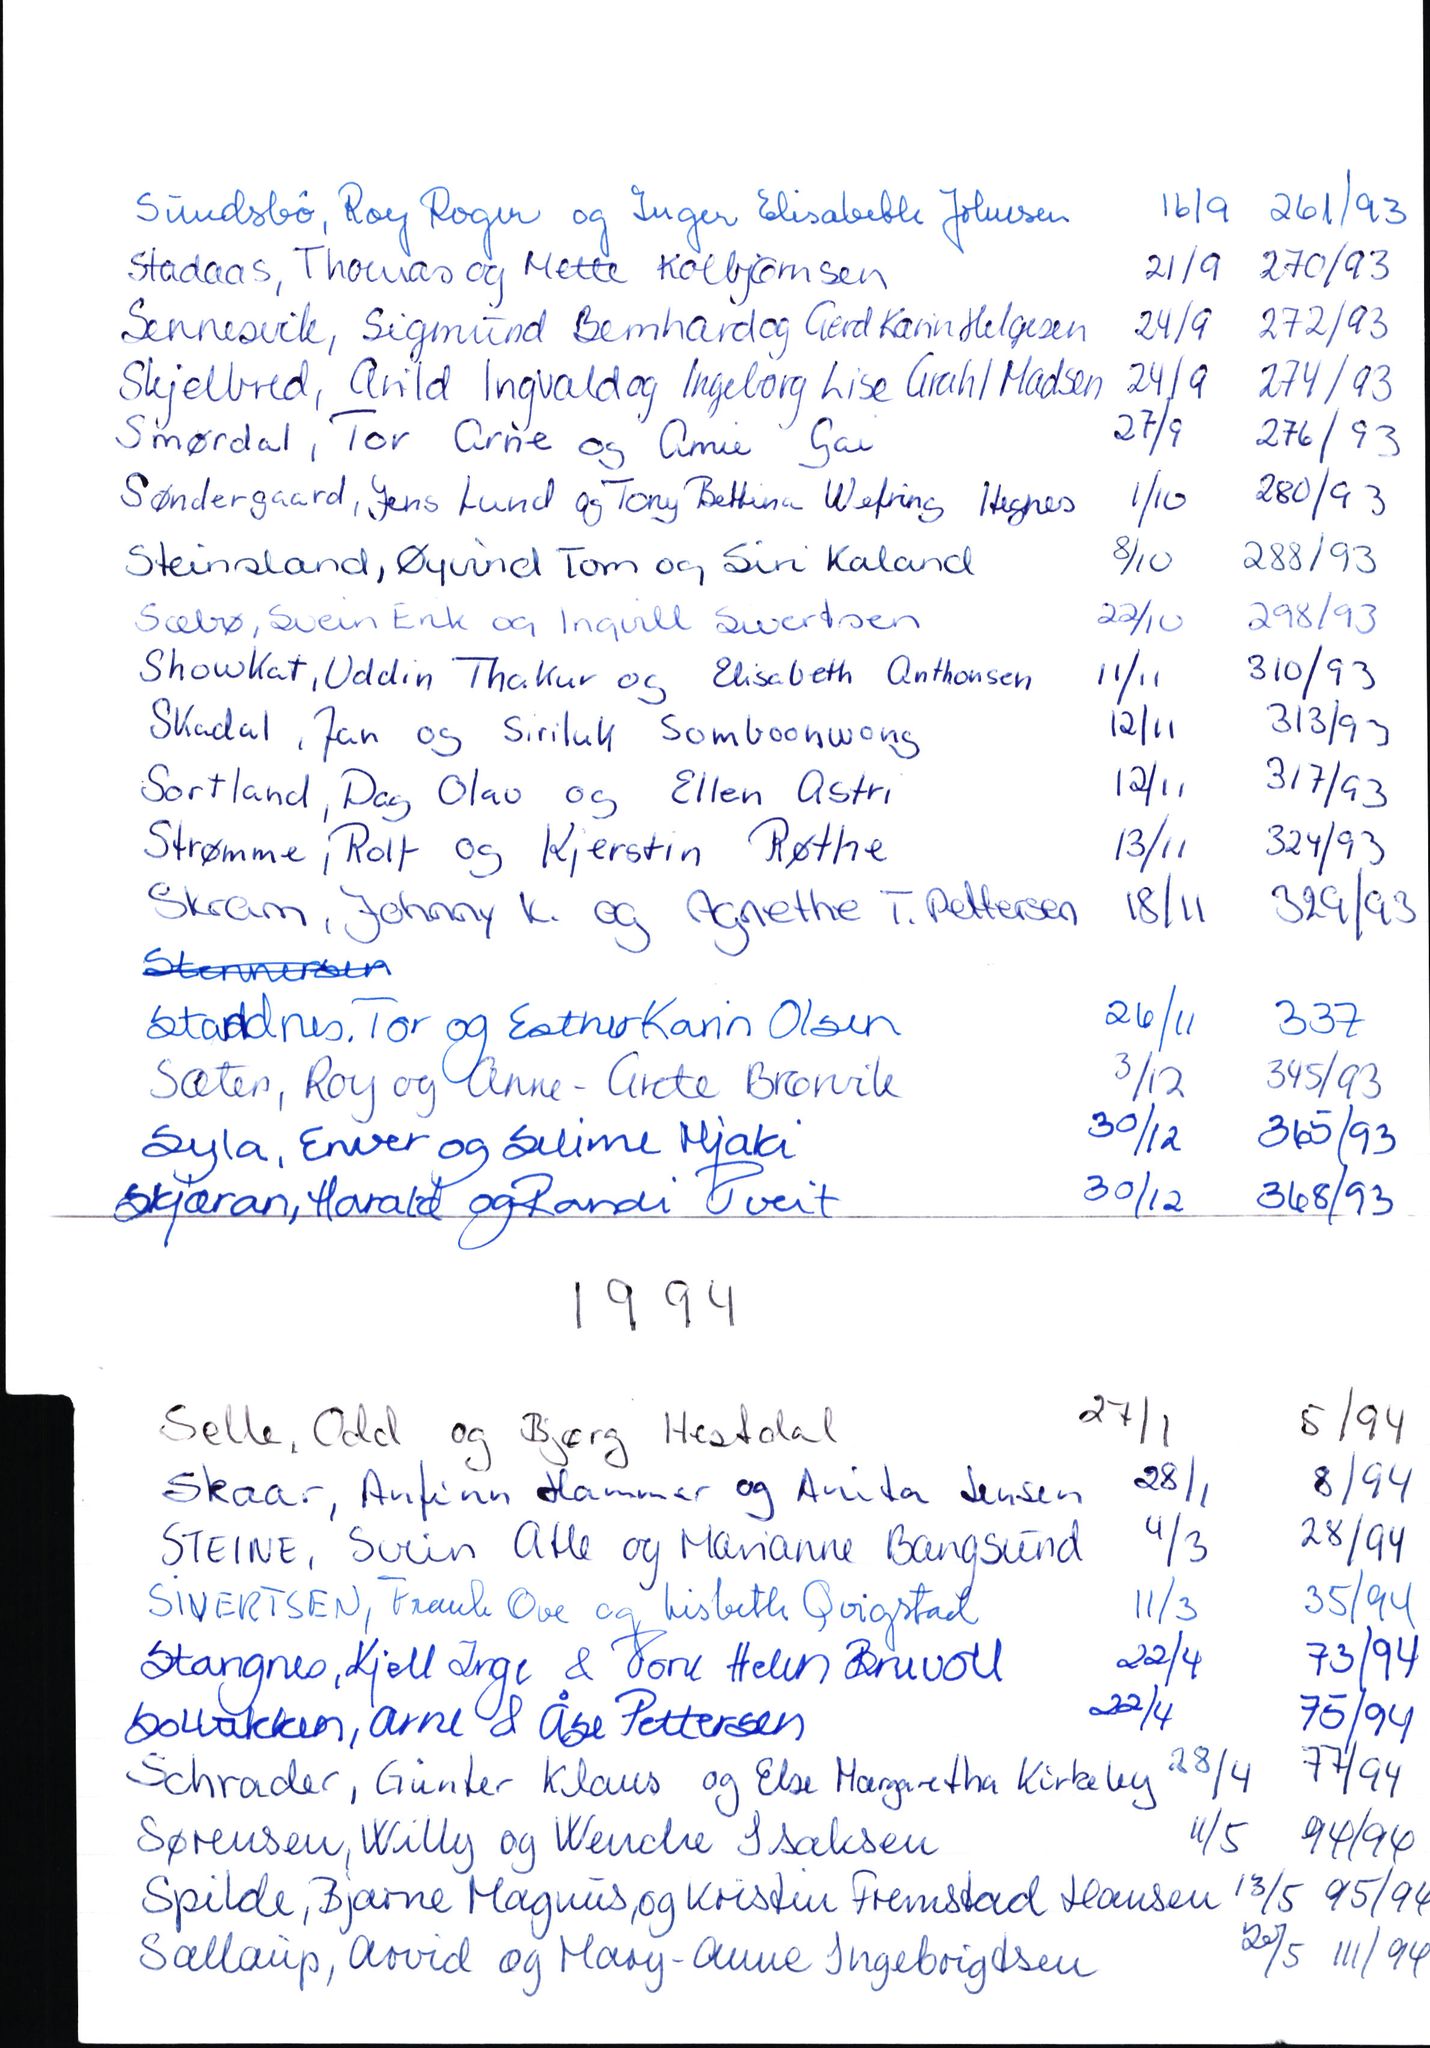 Sundsbö, Roy Roger og Inger Elisabeth Johnsen 16/9 261/93
Stadaas, Thomas og Mette Kolbjørnsen 21/9 270/93
Sennesvik, Sigmund Bernhard og Gerd Karin Helgesen 24/9 272/93
Skjelbred, Arild Ingvald og Ingeborg Lise Grahl Madsen 24/9 274/93
Smørdal, Tor Arne og Gai 27/9 276/93
Søndergaard, Jens Lund og Tony Bettina Wefring Hegnes 1/10 280/93
Steinsland, Øyvind Tom og Siri Kaland 8/10 288/93
Sæbø, Svein Erik og Ingvill Sivertsen 22/10 298/93
Showkat, Uddin Thakur og Elisabeth Anthonsen 11/11 310/93
Skadal, Jan og Siriluk Somboonwong 12/11 313/93
Sortland, Dag Olav og Ellen Astri 12/11 317/93
Strømme, Rolf og Kjerstin Røthe 13/11 324/93
Skram, Johnny K. og Agnethe T. Pettersen 18/11 329/93
Stennersen
Stadnes, Tor og Esther Karin Olsen 26/11 337
Sæter, Roy og Anne-Grete Brørvik 3/12 345/93
Syla, Enver og Selime Mjaki 30/12 365/93
Skjæran, Harald og Randi Tveit 30/12 368/93
1994
Selle, Odd og Bjørg Hestdal 27/1 5/94
Skaar, Anfinn Hammer og Anita Jensen 28/1 8/94
STEINE, Svein Atle og Marianne Bangsund 4/3 28/94
SIVERTSEN, Frank Ove og Lisbeth Qvigstad 11/3 35/94
Stangnes, Kjell Inge & Tone Helen Brevoll 22/4 73/94
Solbakken, Arne & Åse Pettersen 22/4 75/94
Schrader, Günter Klaus og Else Margaretha Kirkeby 28/4 77/94
Sørensen, Willy og Wenche Isaksen 11/5 94/94
Spilde, Bjarne Magnus, og Kristin Fremstad Hansen 13/5 95/94
Sællaup, Arvid og Mary-Anne Ingebrigtsen /5 111/94